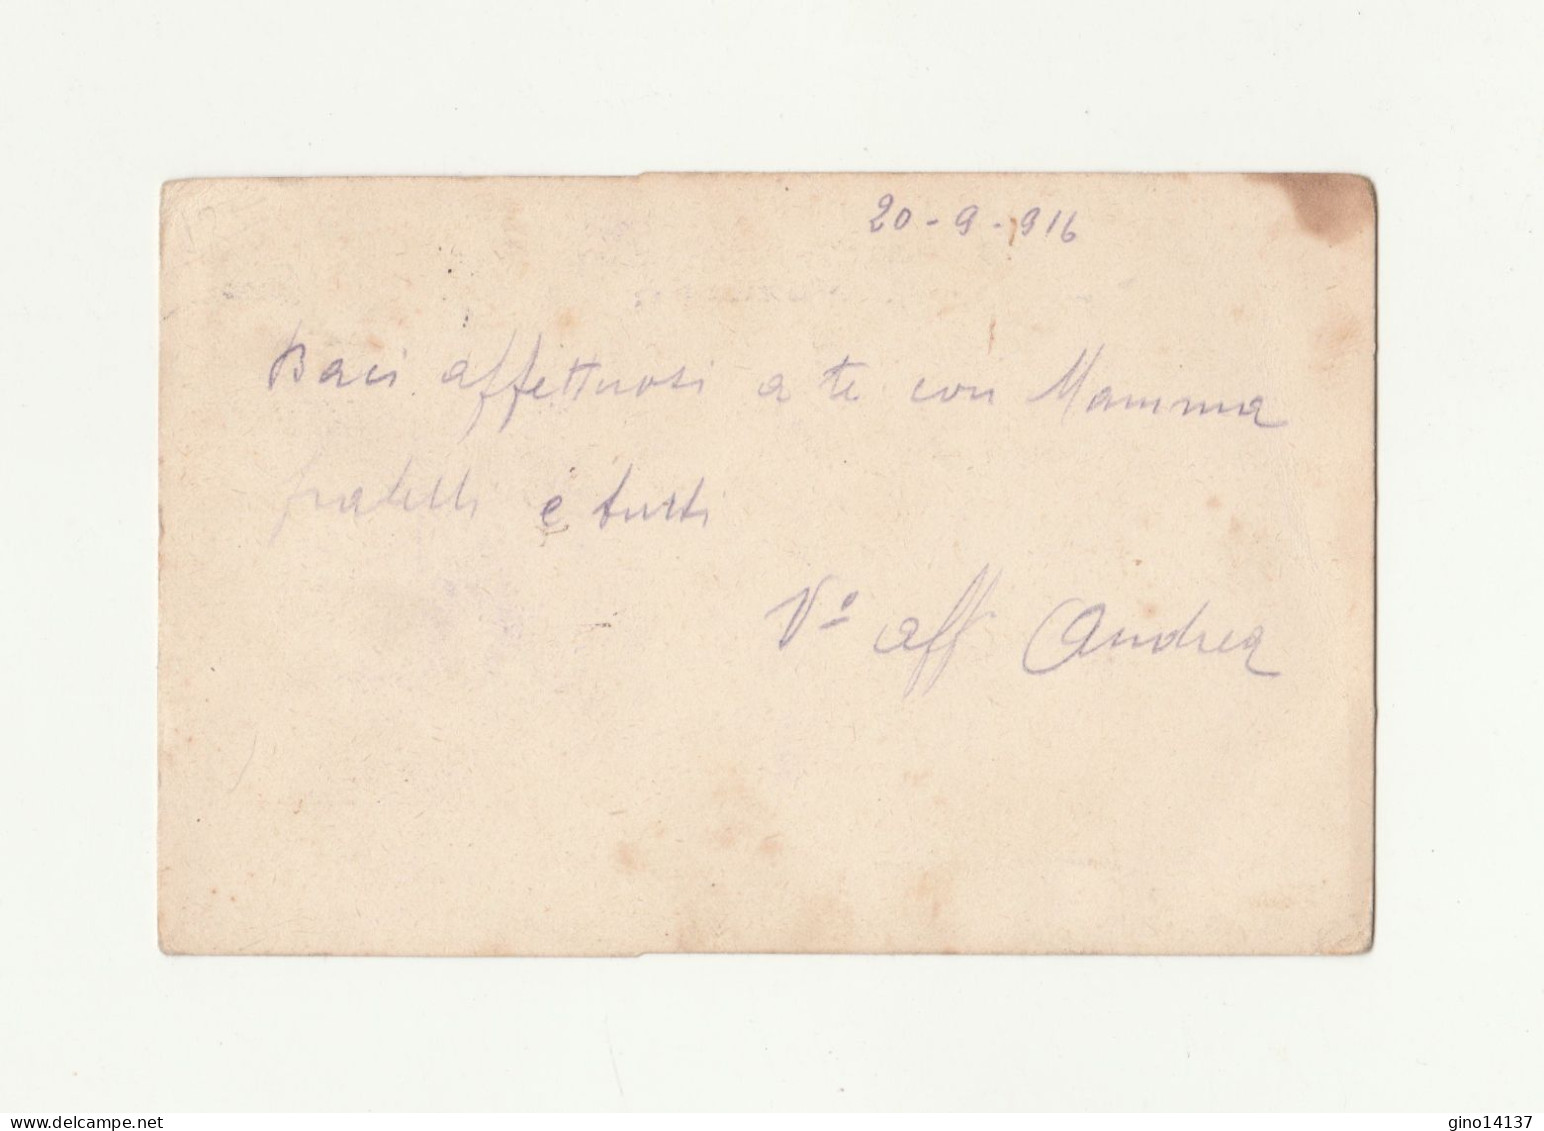 125
20-9-916
Baci affettuosi a te con Mamma
fratelli e tutti
Vº aff Andrea
delcampe.net
gino14137